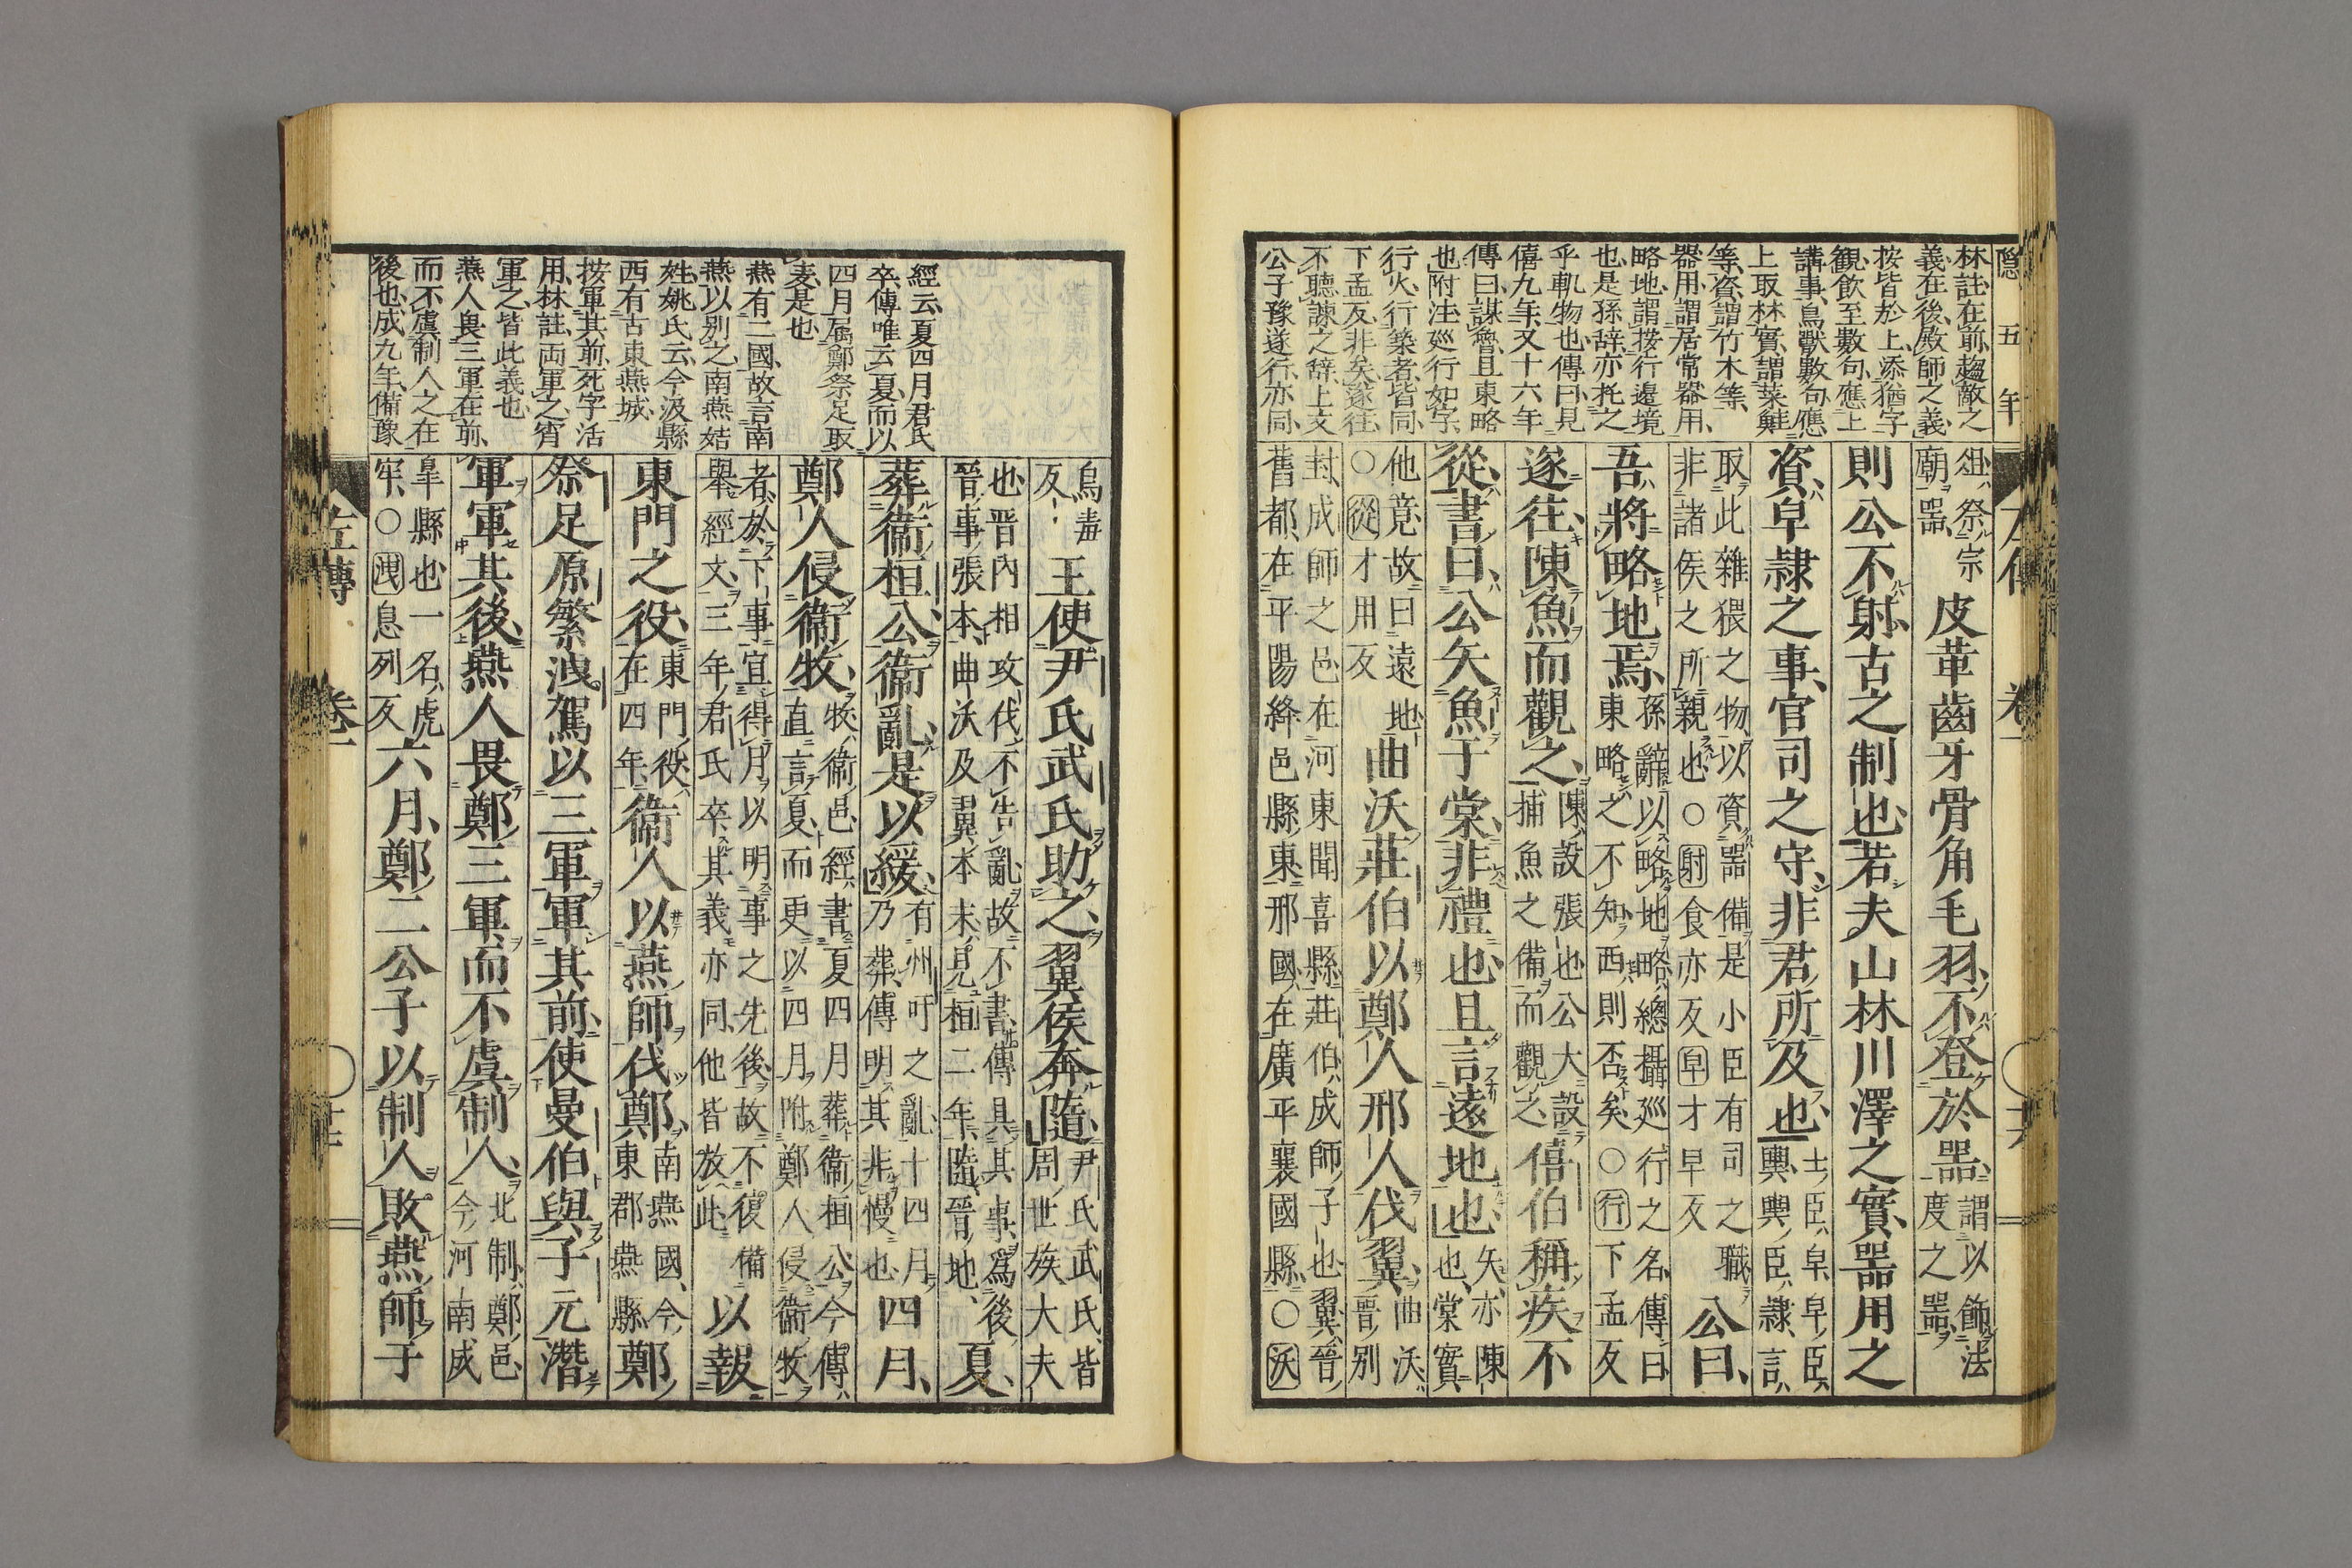 隠五年
林註在前趨敵之
義在後殿師之義
按皆於上添猶字
観飲至數句應上
講事鳥獸數句應
上取林實謂菜鮭
等資謂竹木等
器用謂居常器用
略地謂按行邉境
也是孫辞亦托之
乎軌物也傳曰見
僖九年又十六年
傳曰謀鄫且東略
也附注巡行如字
行火行築者皆同
下孟反非矣遂往
不聽諫之辞上文
公子豫遂行亦同
俎祭宗廟器皮革齒牙骨角毛羽不登於器謂以飾法度之器
則公不射古之制也若夫山林川澤之實器用之
資皁隷之事官司之守非君所及也士臣皁皁臣輿輿臣隷言
取此雜猥之物以資器備是小臣有司之職非諸侯之所親也○射食亦反皁才早反公曰
吾將略地焉孫辭以略地略總攝巡行之名傳曰東略之不知西則否矣○行下孟反
遂往陳魚而觀之陳設張也公大設捕魚之備而觀之僖伯稱疾不
從書曰公矢魚于棠非禮也且言遠地也矢亦陳也棠實
他竟故曰遠地○從才用反曲沃莊伯以鄭人邢人伐翼曲沃晉別
封成師之邑在河東聞喜縣莊伯成師子也翼晉舊都在平陽絳邑縣東邢國在廣平襄國縣○沃
左傳 卷一
經云夏四月君氏
卒傳唯云夏而以
四月属鄭祭足取
麦是也
燕有二國故言南
燕以別之南燕姞
姓姚氏云今汲縣
西有古東燕城
按軍其前死字活
用林註両軍之宵
軍之皆此義也
燕人畏三軍在前
而不虞制人之在
後也成九年備豫
烏毒反王使尹氏武氏助之翼侯奔隨尹氏武氏皆周世族大夫
也晉内相攻伐不告亂故不書傳具其事爲後晉事張本曲沃及翼本末見桓二年隨晉地夏
葬衞桓公衞亂是以緩有州吁之亂十四月乃葬傳明其非慢也四月
鄭人侵衞牧牧衞邑經書夏四月葬衞桓公今傳直言夏而更以四月附鄭人侵衞牧
者於下事宜得月以明事之先後故不復備舉經文三年君氏卒其義亦同他皆放此以報
東門之役東門役在四年衞人以燕師伐鄭南燕國今東郡燕縣鄭
祭足原繁洩駕以三軍軍其前使曼伯與子元潛
軍軍其後燕人畏鄭三軍而不虞制人北制鄭邑今河南成
皐縣也一名虎牢○洩息列反六月鄭二公子以制人敗燕師于
左傳 卷一